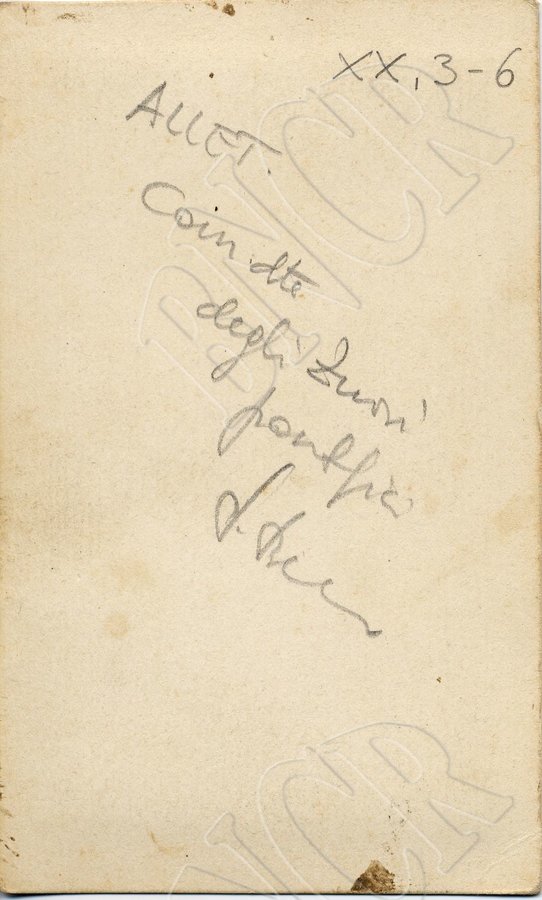 XX, 3-6
ALLET.
Com.dte
degli Zuavi
pontifici
BNCR